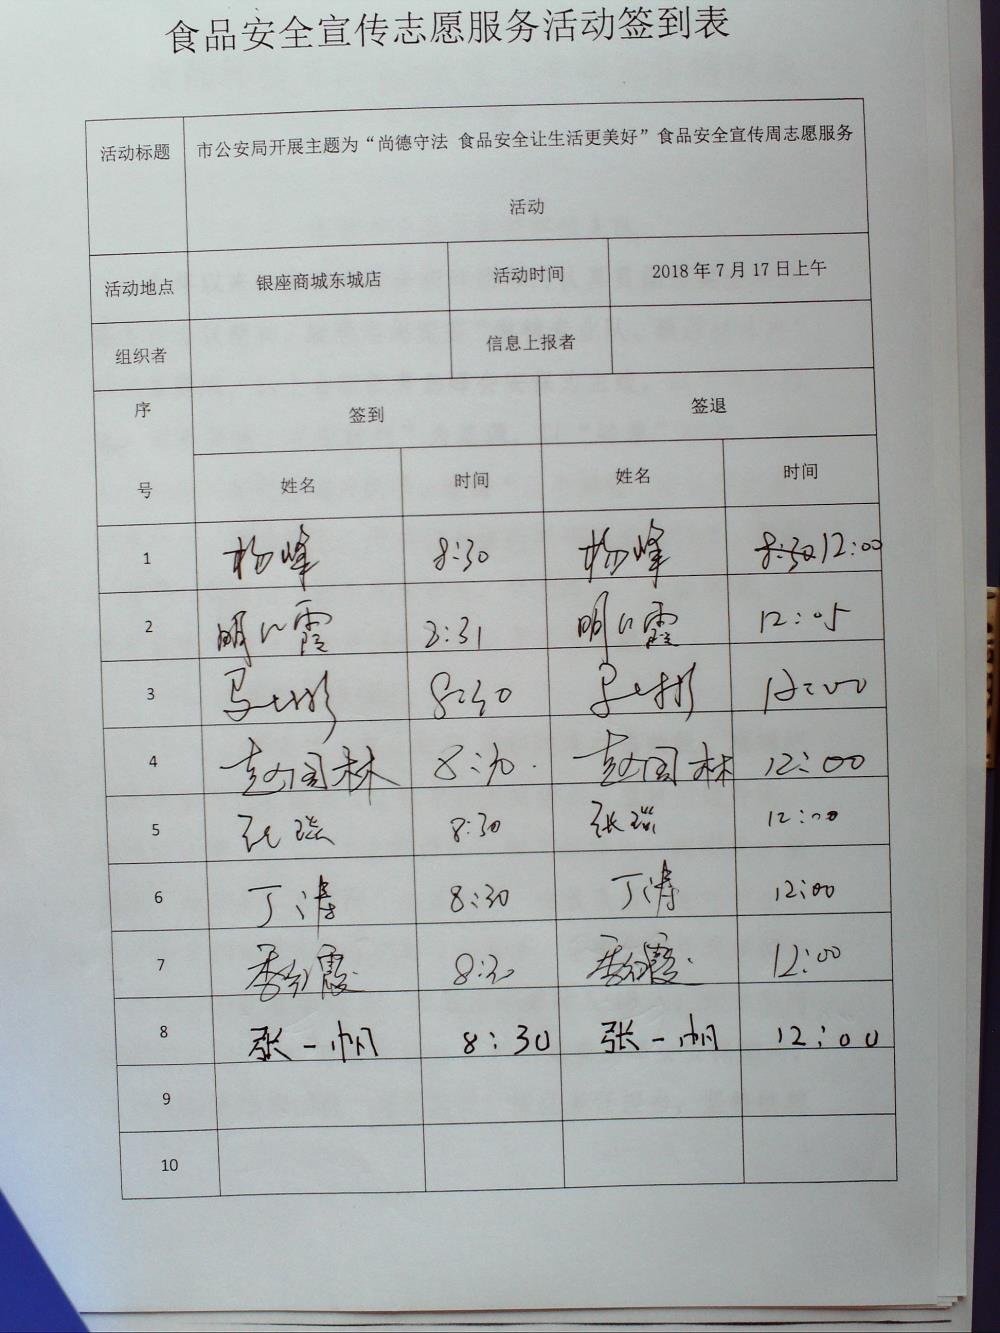 食品安全宣传志愿服务活动签到表
活动标题 市公安局开展主题为“尚德守法 食品安全让生活更美好”食品安全宣传周志愿服务
活动
活动地点 银座商城东城店 活动时间 2018年7月17日上午
组织者 信息上报者
序 签到 签退
号 姓名 时间 姓名 时间
1 杨峰 8:30 杨峰 8:30 12:00
2 明 霞 8:31 明 霞 12:05
3 马 彬 8:30 马 彬 12:00
4 赵国林 8:30 赵国林 12:00
5 张瑞 8:30 张瑞 12:00
6 丁涛 8:30 丁涛 12:00
7 季红霞 8:30 季红霞 12:00
8 张一帆 8:30 张一帆 12:00
9
10